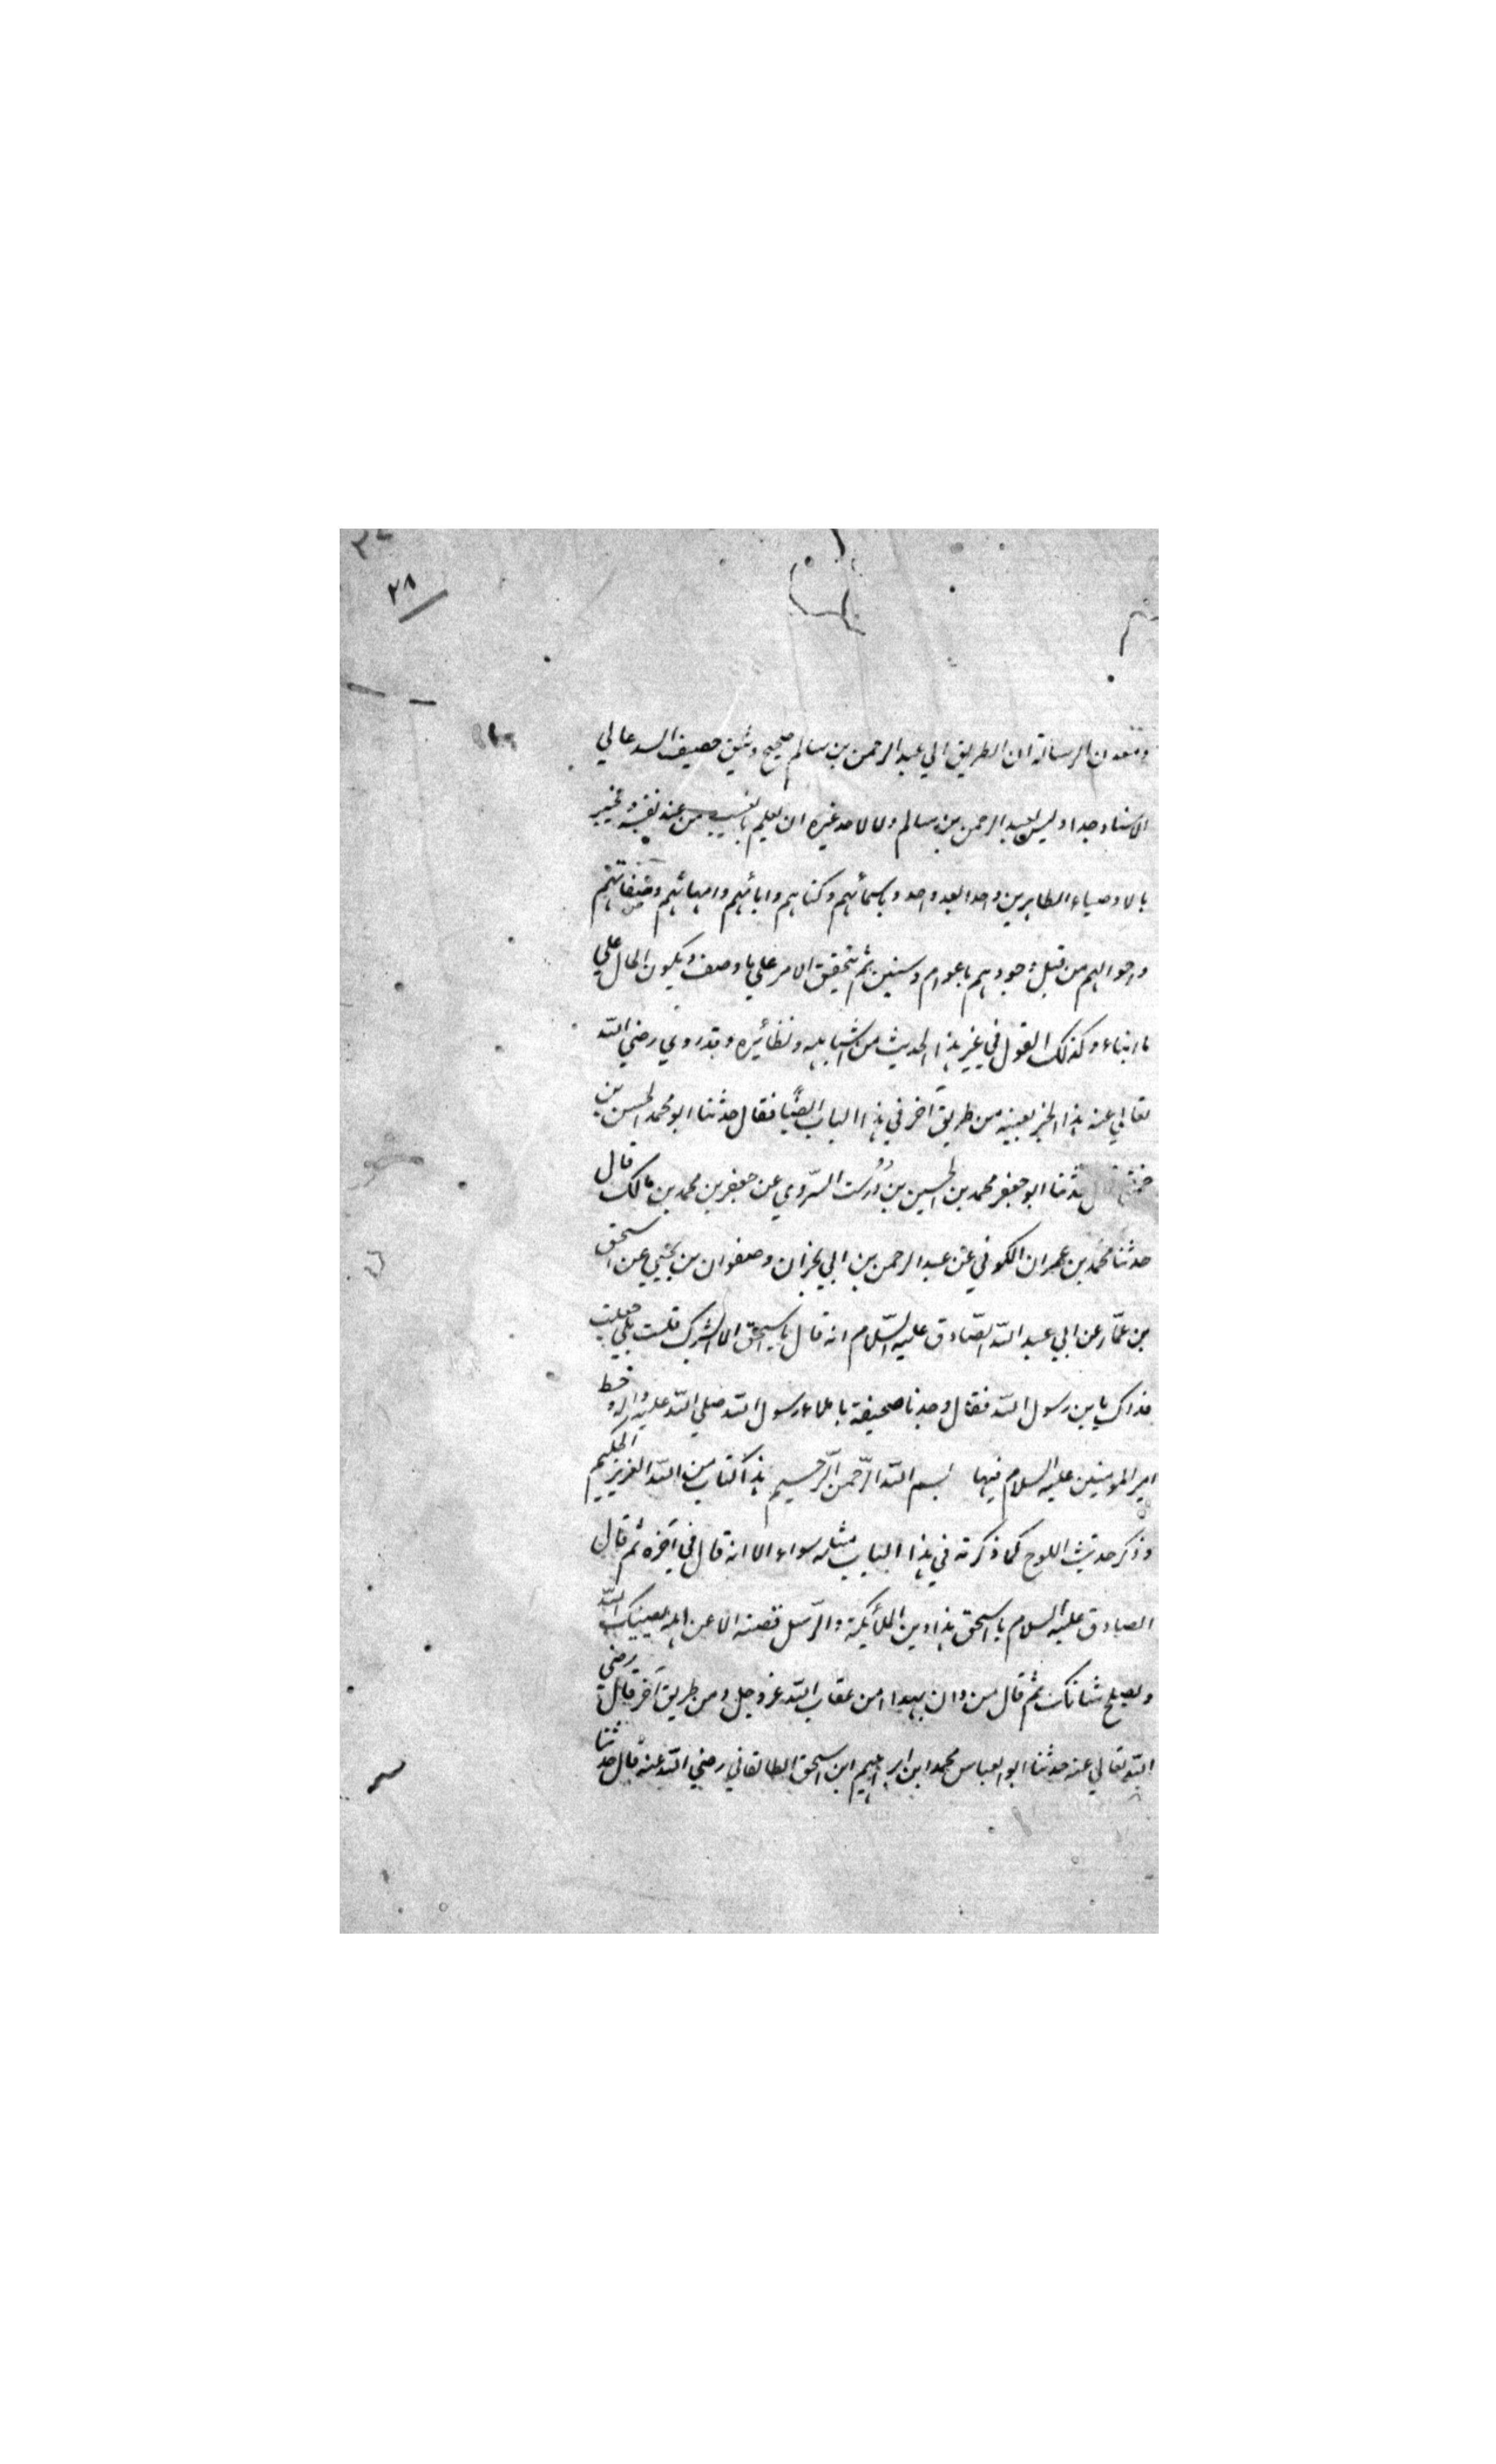 ٢٨
ومعدن الرسالة ان الطريق الي عبد الرحمن بن سالم صحيح وثيق حصيف السد عالي
الاسناد جدا وليس لعبد الرحمن بن سالم ولا لاحد غيره ان يعلم بالغيب من عند نفسه ويخبر
بالاوصياء الطاهرين واحدا بعد واحد وباسمائهم وكناهم وابائهم وامهاتهم وصفاتهم
واحوالهم من قبل وجودهم باعوام وسنين ثم يتحقق الامر علي ما وصف ويكون الحال علي
ما انباء وكذلك القول في غير هذا الحديث من اشباهه ونظائره وقد روي رضي الله
تعالي عنه هذا الخبر بعينه من طريق آخر في هذا الباب ايضا فقال حدثنا ابو محمد الحسن بن
حمزة قال حدثنا ابو جعفر محمد بن الحسين بن دُرُست السّروي عن جعفر بن محمد بن مالك قال
حدثنا محمد بن عمران الكوفي عن عبد الرحمن بن ابي نجران وصفوان بن يحيي عن اسحق
بن عمّار عن ابي عبد الله الصّادق عليه السّلام انه قال يا اسحق الا ابشرك قلت بلي جعلت
فداك يابن رسول الله فقال وجدنا صحيفة باملاء رسول الله صلي الله عليه واله وخط
امير المومنين عليه السلام فيها بسم الله الرّحمن الرّحيم هذا كتاب من الله العزيز الحكيم
وذكر حديث اللوح كما ذكرته في هذا الباب مثله سواء الا انه قال في آخره ثم قال
الصادق عليه السلام يا اسحق هذا دين الملائكة والرّسل فصنه الا عن اهله يصينك الله
ويصلح شانك ثم قال من دان بهذا امن عقاب الله عز وجل ومن طريق آخر قال رضي
الله تعالي عنه حدثنا ابو العباس محمد ابن ابراهيم ابن اسحق الطالقاني رضي الله عنه قال حدثنا